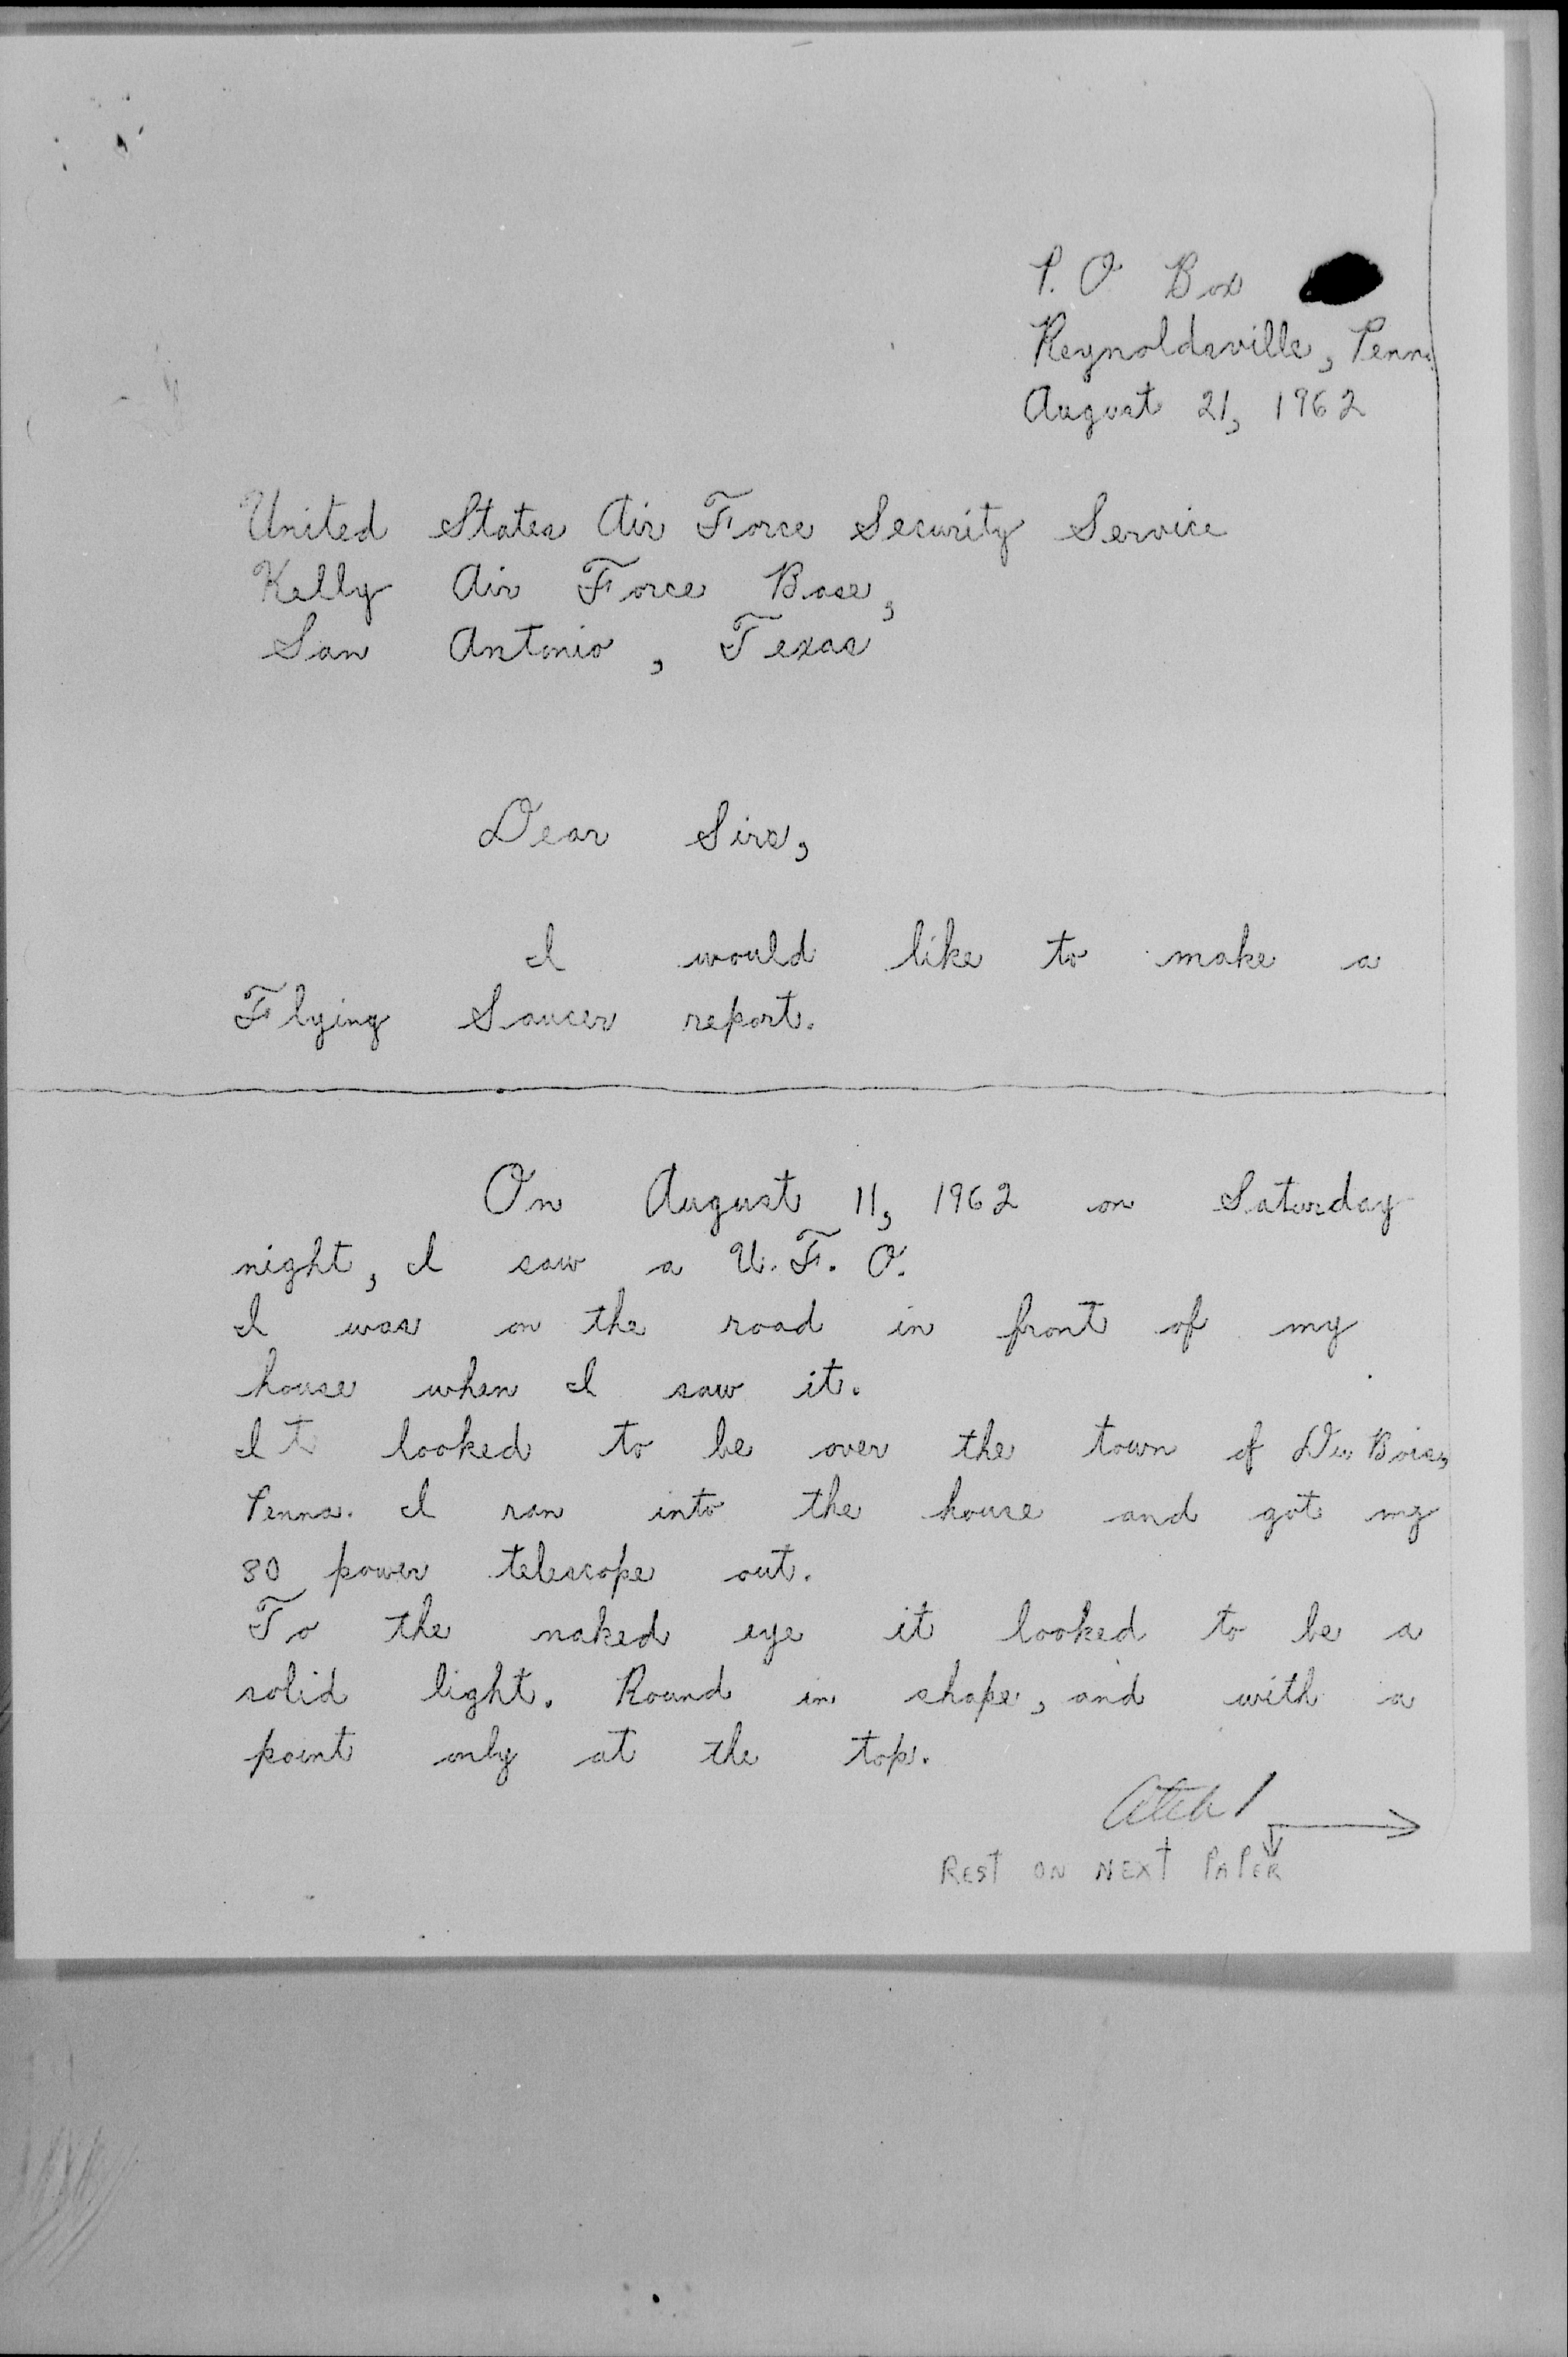 P. O Box
Reynoldsville, Penna
August 21, 1962
United States Air Force Security Service
Kelly Air Force Base,
San Antonio, Texas
Dear Sirs,
I would like to make a
Flying Saucer report.
On August 11, 1962 on Saturday
night, I saw a U. F. O.
I was on the road in front of my
house when I saw it.
It looked to be over the town of Du Bois,
Penna. I ran into the house and got my
80 power telescope out.
To the naked eye it looked to be a
solid light. Round in shape, and with a
point only at the top.
Atch 1
REST ON NEXT PAPER